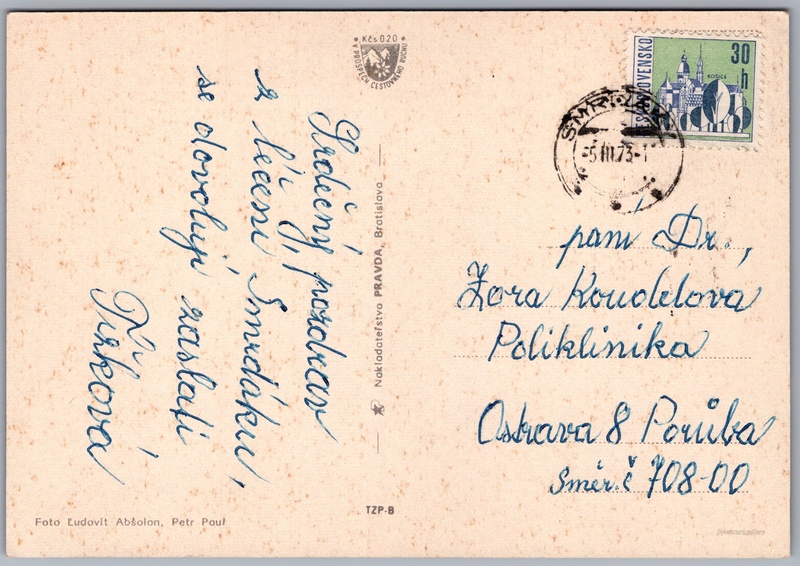 Srdečný pozdrav
z léčení Smrdáku,
se dovoluji zaslati
Kčs 0.20
V PROSPECH CESTOVNÉHO RUCHU
Nakladateľstvo PRAVDA, Bratislava
Foto Ľudovít Abšolon, Petr Paul
TZP-B
30
h
KOŠICE
-5.III.73-1
paní Dr.,
Zora Koudelová
Poliklinika
Ostrava 8 Poruba
Směr. č 708-00